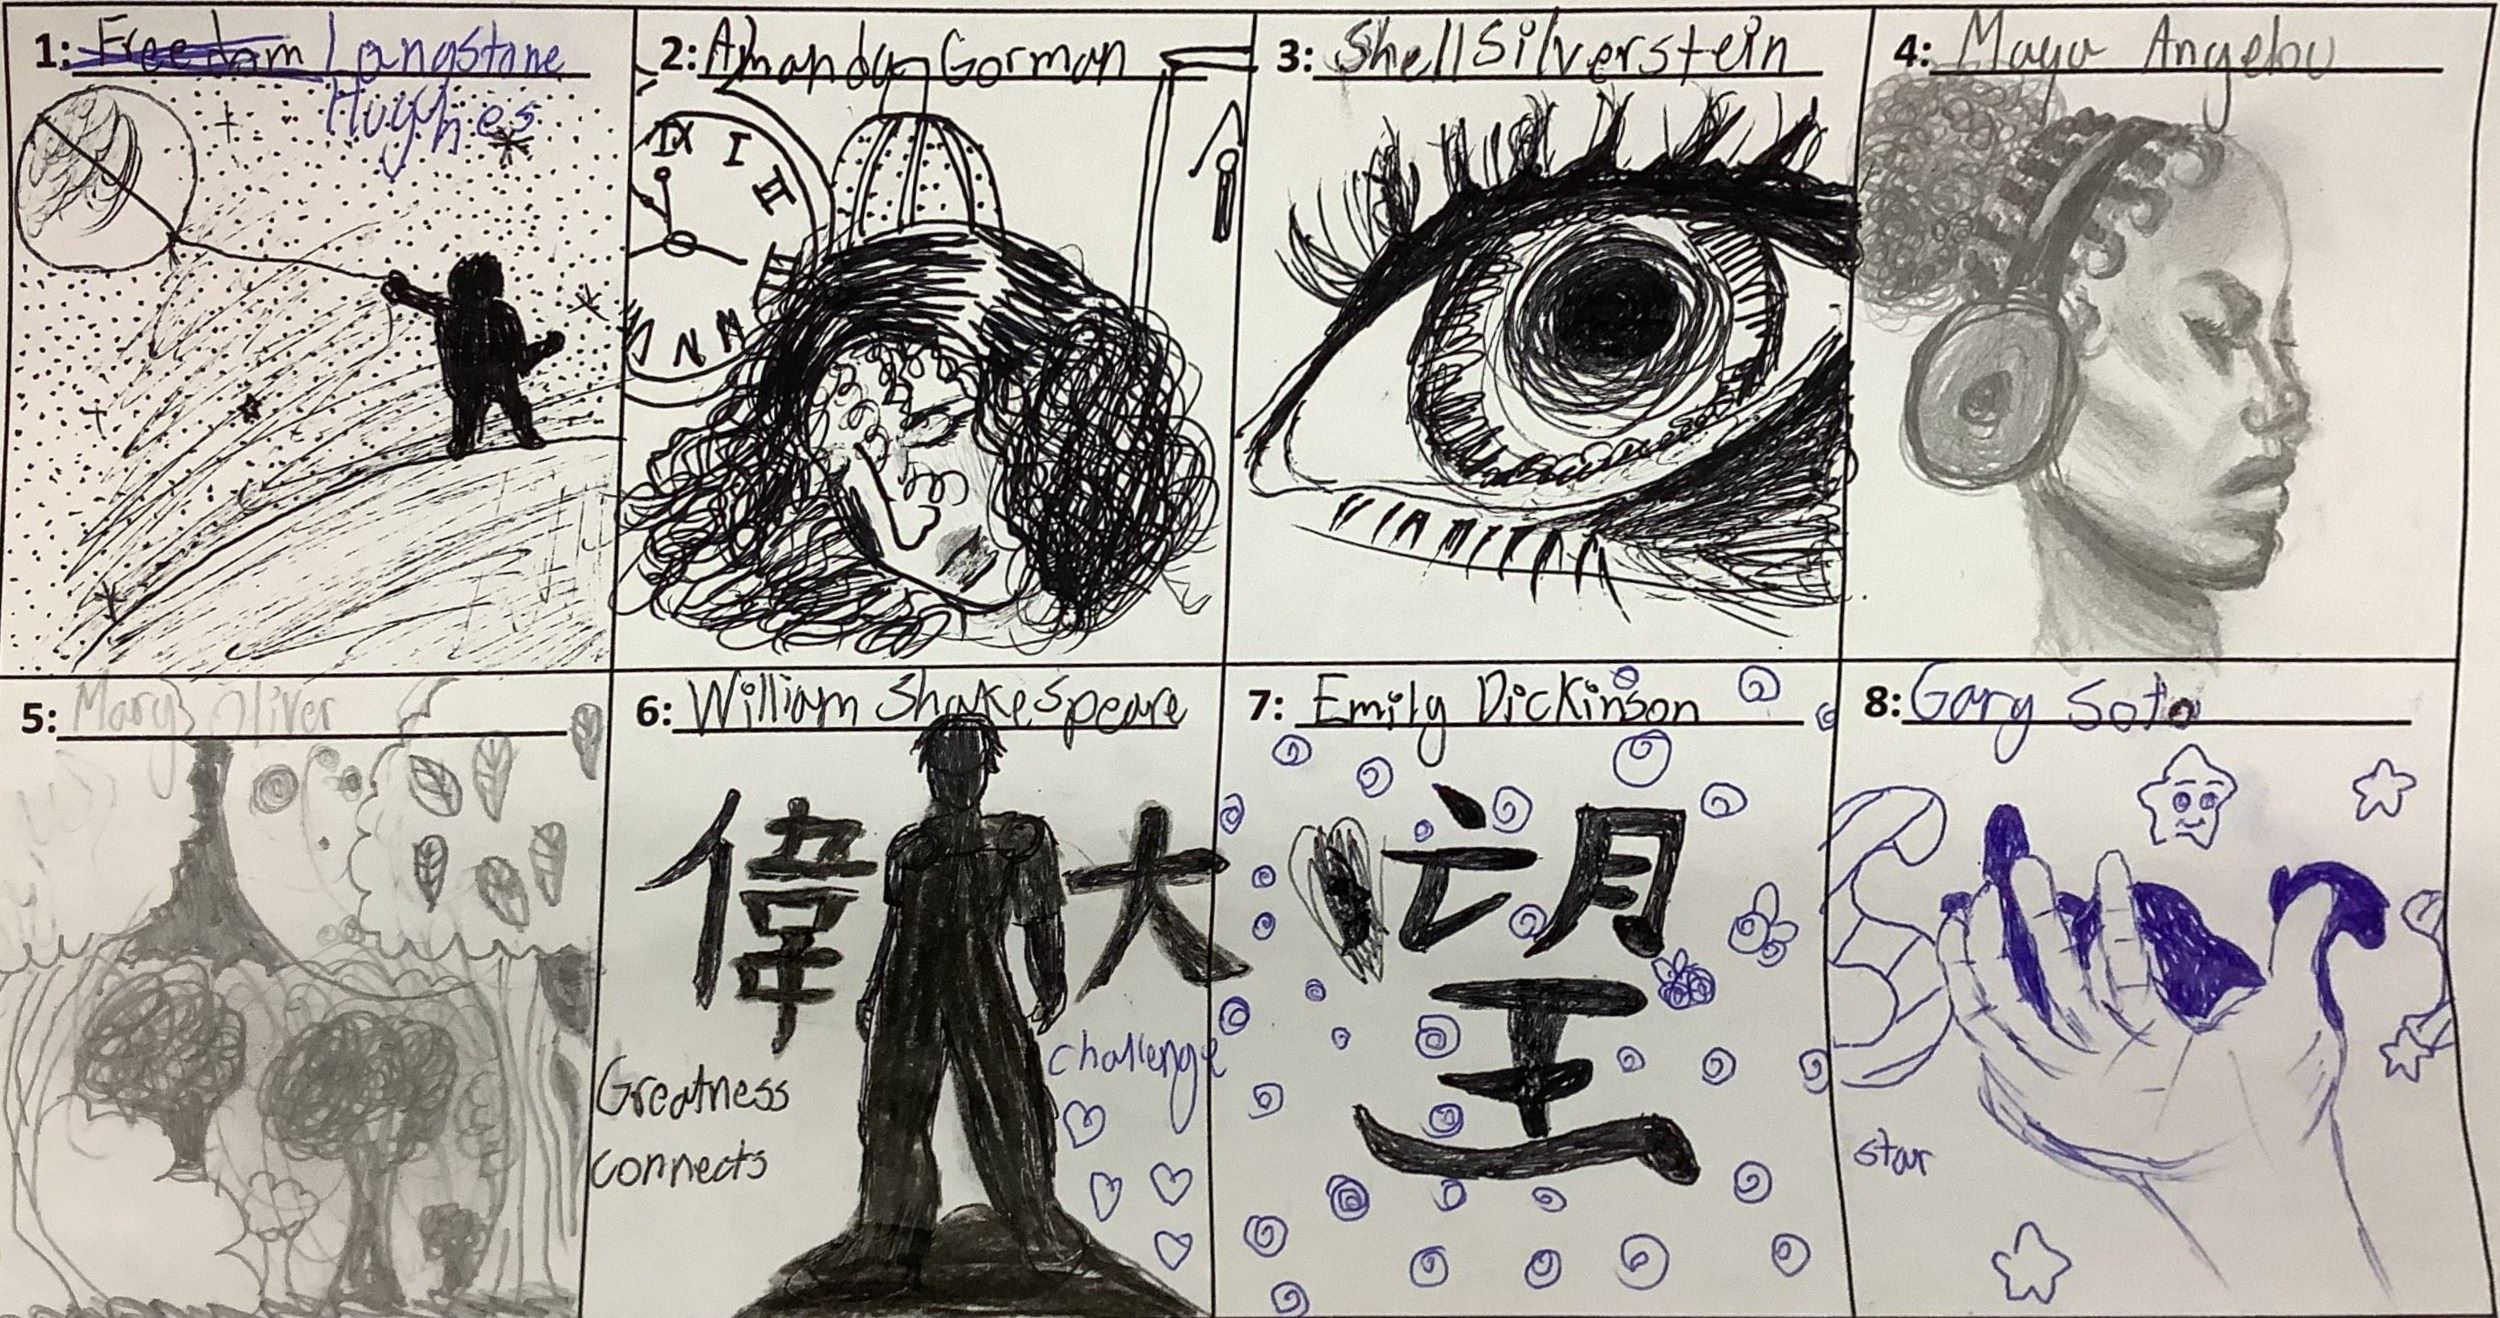 1: Freedom Langstone
Hughes
2: Amanda Gorman
IX I II III
3: Shell Silverstein
4: Maya Angelou
5: Mary Oliver
6: William Shakespeare
偉大
challenge
Greatness
connects
7: Emily Dickinson
望
8: Gary Soto
star